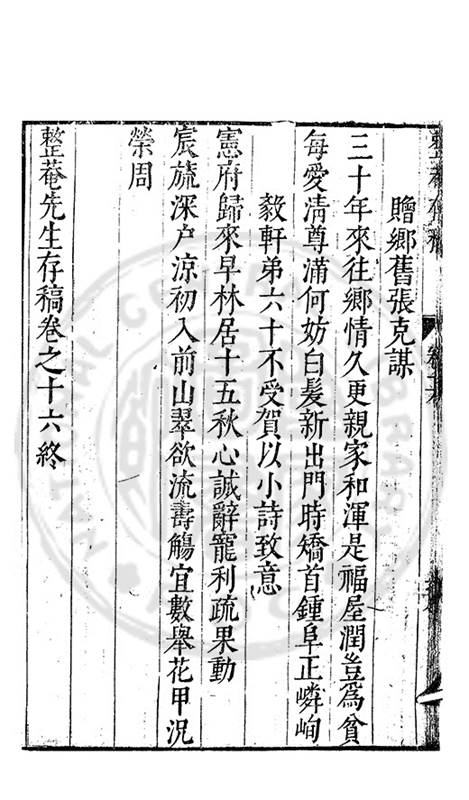 整菴存稿 卷十六
贈鄉舊張克謀
三十年來往鄉情久更親家和渾是福屋潤豈為貧
每愛清尊滿何妨白髮新出門時矯首鍾阜正嶙峋
毅軒弟六十不受賀以小詩致意
憲府歸來早林居十五秋心誠辭寵利疏果動
宸旒深户涼初入前山翠欲流壽觴宜數舉花甲況
榮周
整菴先生存稿卷之十六終